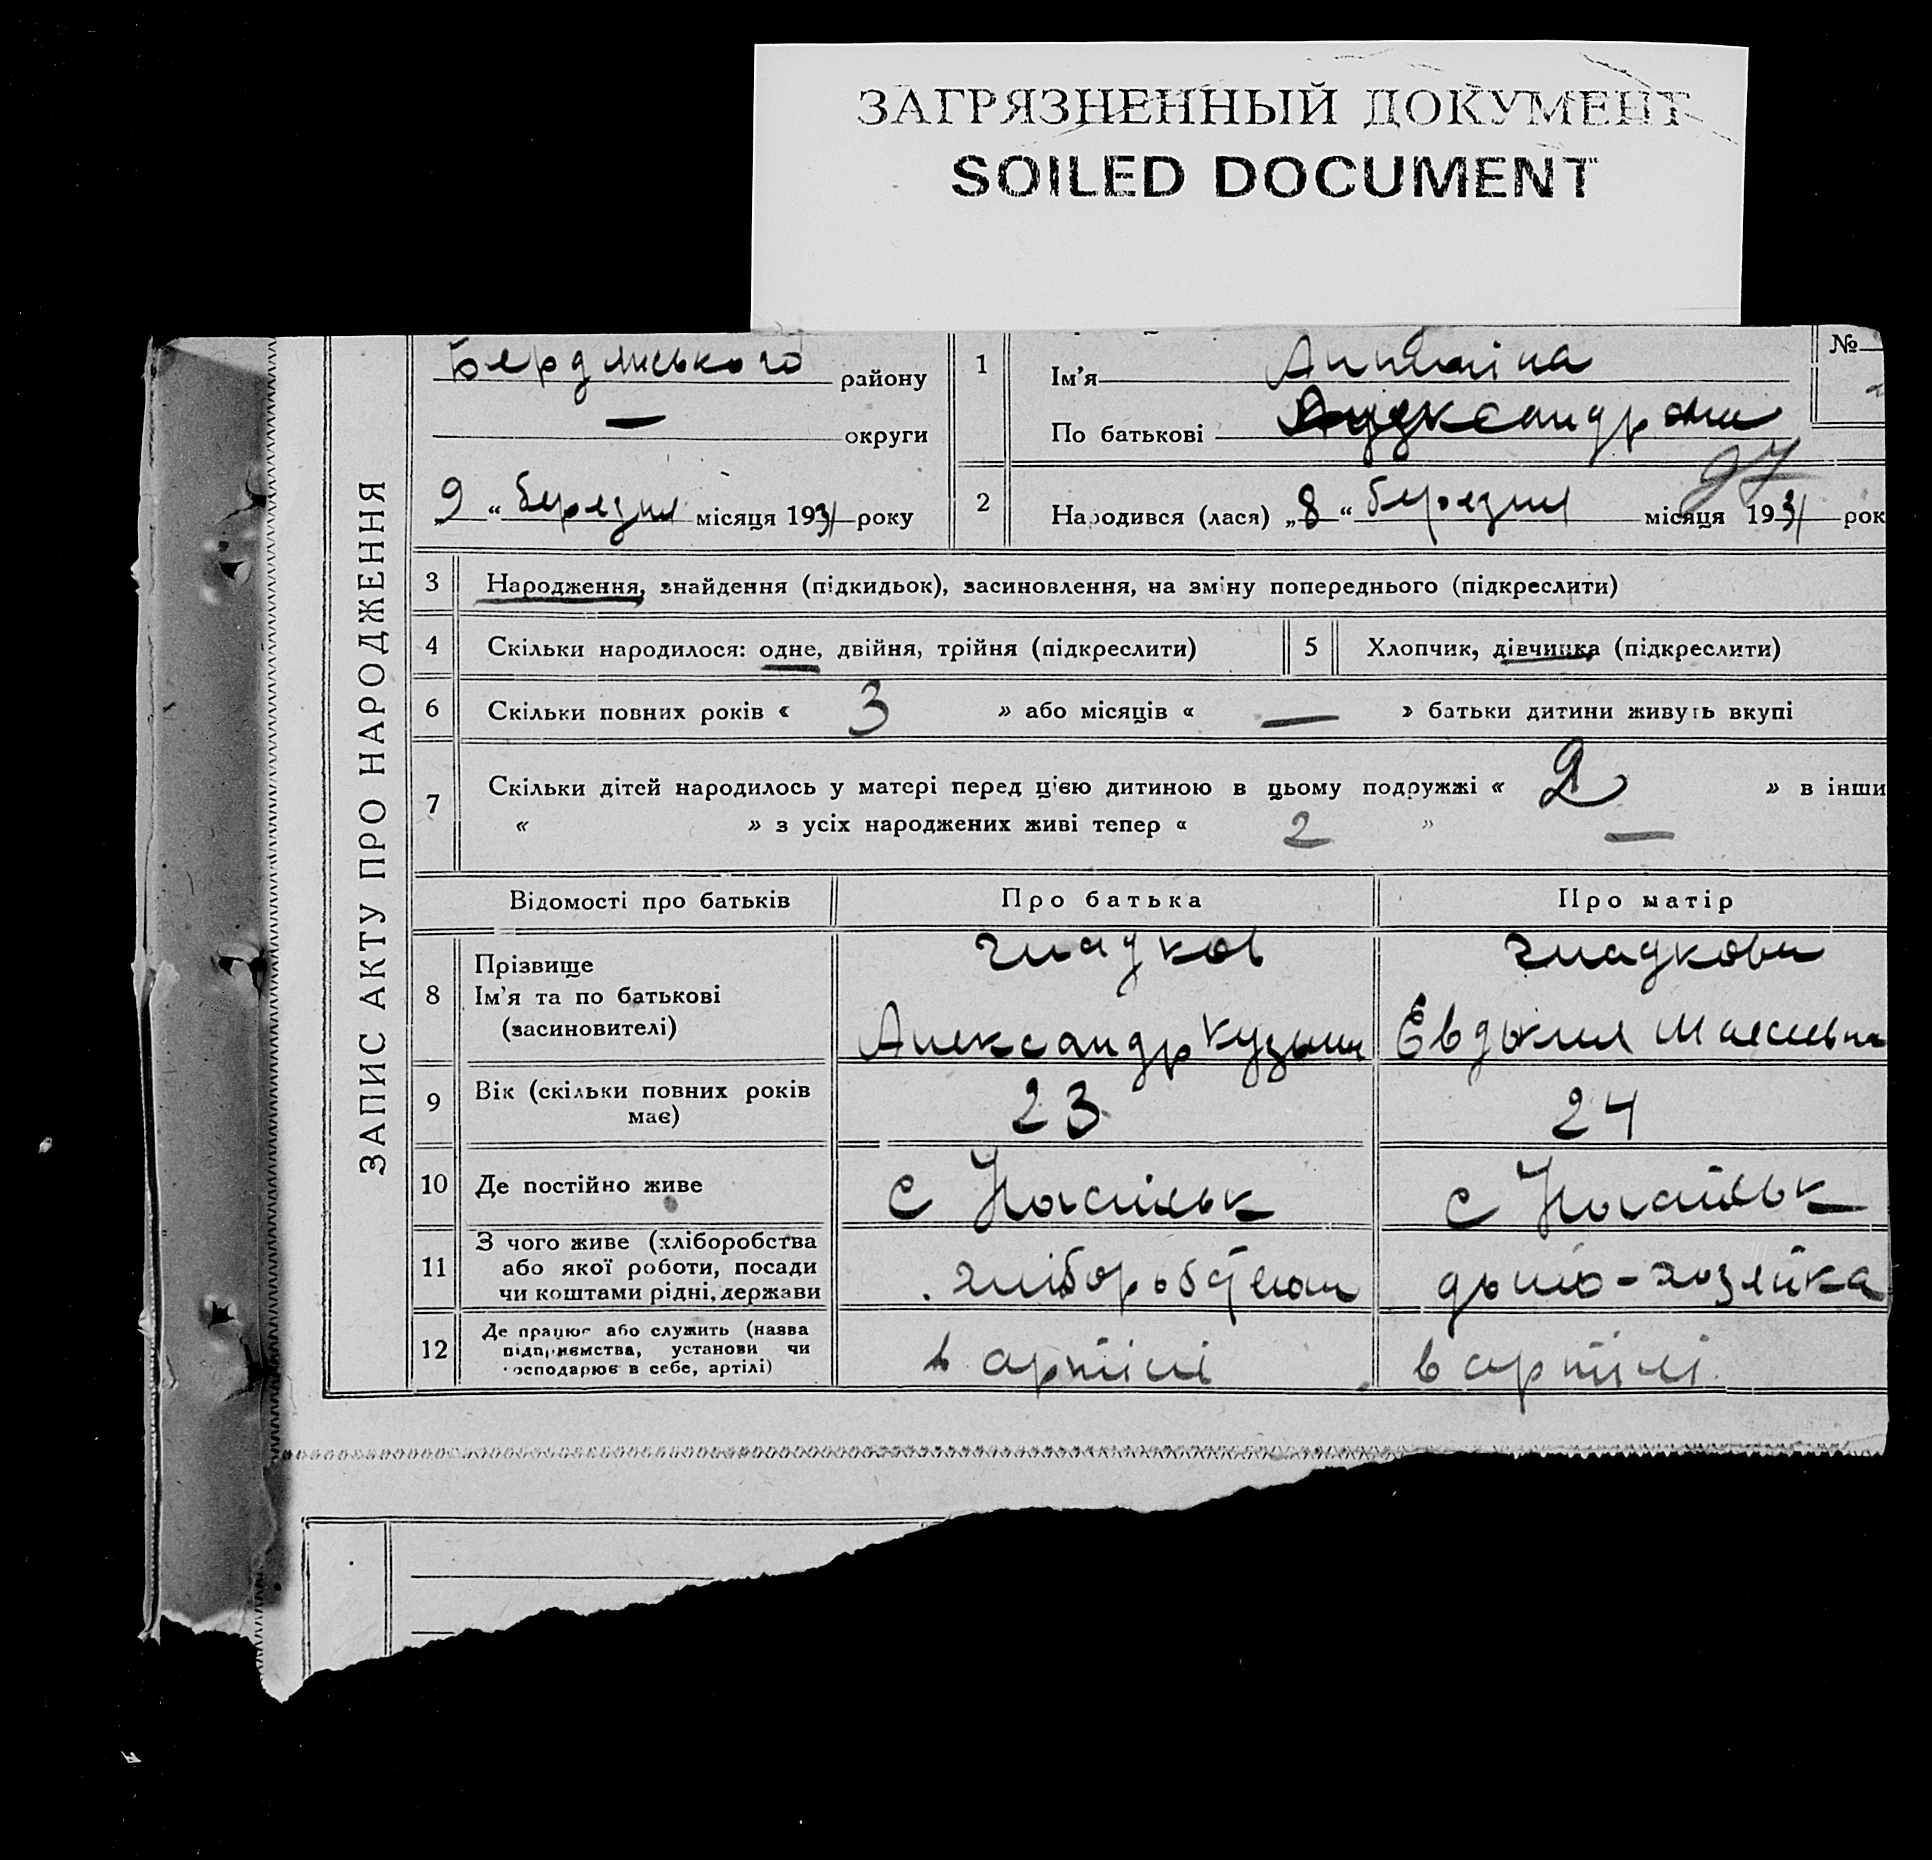 ЗАГРЯЗНЕННЫЙ ДОКУМЕНТ
SOILED DOCUMENT
ЗАПИС АКТУ ПРО НАРОДЖЕННЯ
Бердянського району
— округи
„ 9 “ березня місяця 1931 року
1 Ім’я Антоніна
По батькові Александровна
№
2 Народився (лася) „ 8 “ березня місяця 1931 рок
3 Народження, знайдення (підкидьок), засиновлення, на зміну попереднього (підкреслити)
4 Скільки народилося: одне, двійня, трійня (підкреслити)
5 Хлопчик, дівчинка (підкреслити)
6 Скільки повних років « 3 » або місяців « — » батьки дитини живуть вкупі
7 Скільки дітей народилось у матері перед цією дитиною в цьому подружжі « 2 » в інши
« » з усіх народжених живі тепер « 2 » —
Відомості про батьків Про батька Про матір
8 Прізвище
Ім’я та по батькові
(засиновителі)
Гладков
Александр Кузьмич
Гладкова
Евдокия
9 Вік (скільки повних років має)
23
24
10 Де постійно живе
с
с
11 З чого живе (хліборобства
або якої роботи, посади
чи коштами рідні, держави
хліборобством
домо-хозяйка
12 Де працює або служить (назва
підприємства, установи чи
господарює в себе, артілі)
в артілі
в артілі